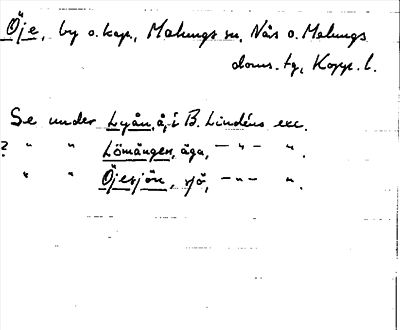 Öje, by o. kap., Malungs sn, Nås o. Malungs
doms. tg, Kopp. l.
Se under Lyån, å, i B. Lindéns exc.
? " " Lömången, äga, - " - ".
" " Öjesjön, sjö, - " - ".